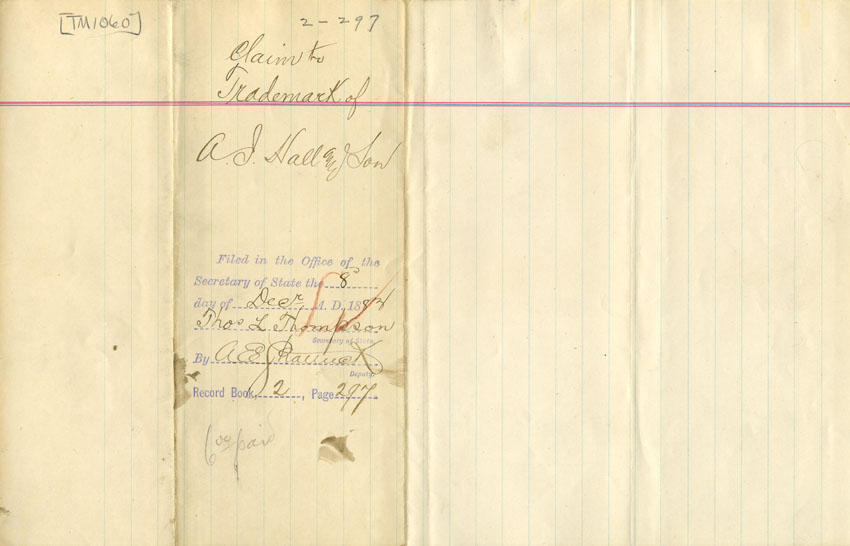 [TM1060]
2-297
Claim to
Trademark of
A. I. Hall and Son
Filed in the Office of the
Secretary of State the 8
day of Decr, A. D. 188
Thos L Thompson
Secretary of State
By A E
Deputy.
Record Book, 2, Page 297.
6 00 paid